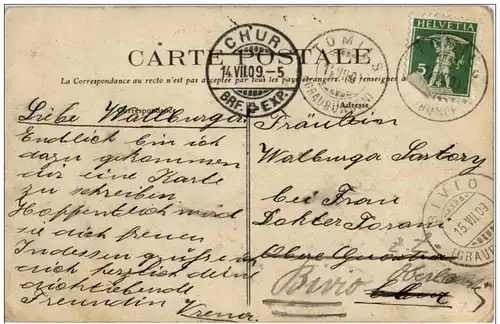 CARTE POSTALE
La Correspondance au recto n'est pas acceptée par tous les pays étrangers. (Se renseigner à
Correspondance
Adresse
CHUR
14.VII.09.-5
BRF. EXP.
TOMILS
(GRAUBÜNDEN)
HELVETIA
5
BIVIO
15.VII.09
(GRAUB
Liebe Wallburga
Endlich bin ich
dazu gekommen
dir eine Karte
zu schreiben.
Hoffentlich wird
sie dich freuen
Indessen grüsse ich
dich herzlich deine
dichliebende
Freundin
Fräulein
Walburga Sartory
bei Frau
Dokter
Obere
z. Z.
Bivio